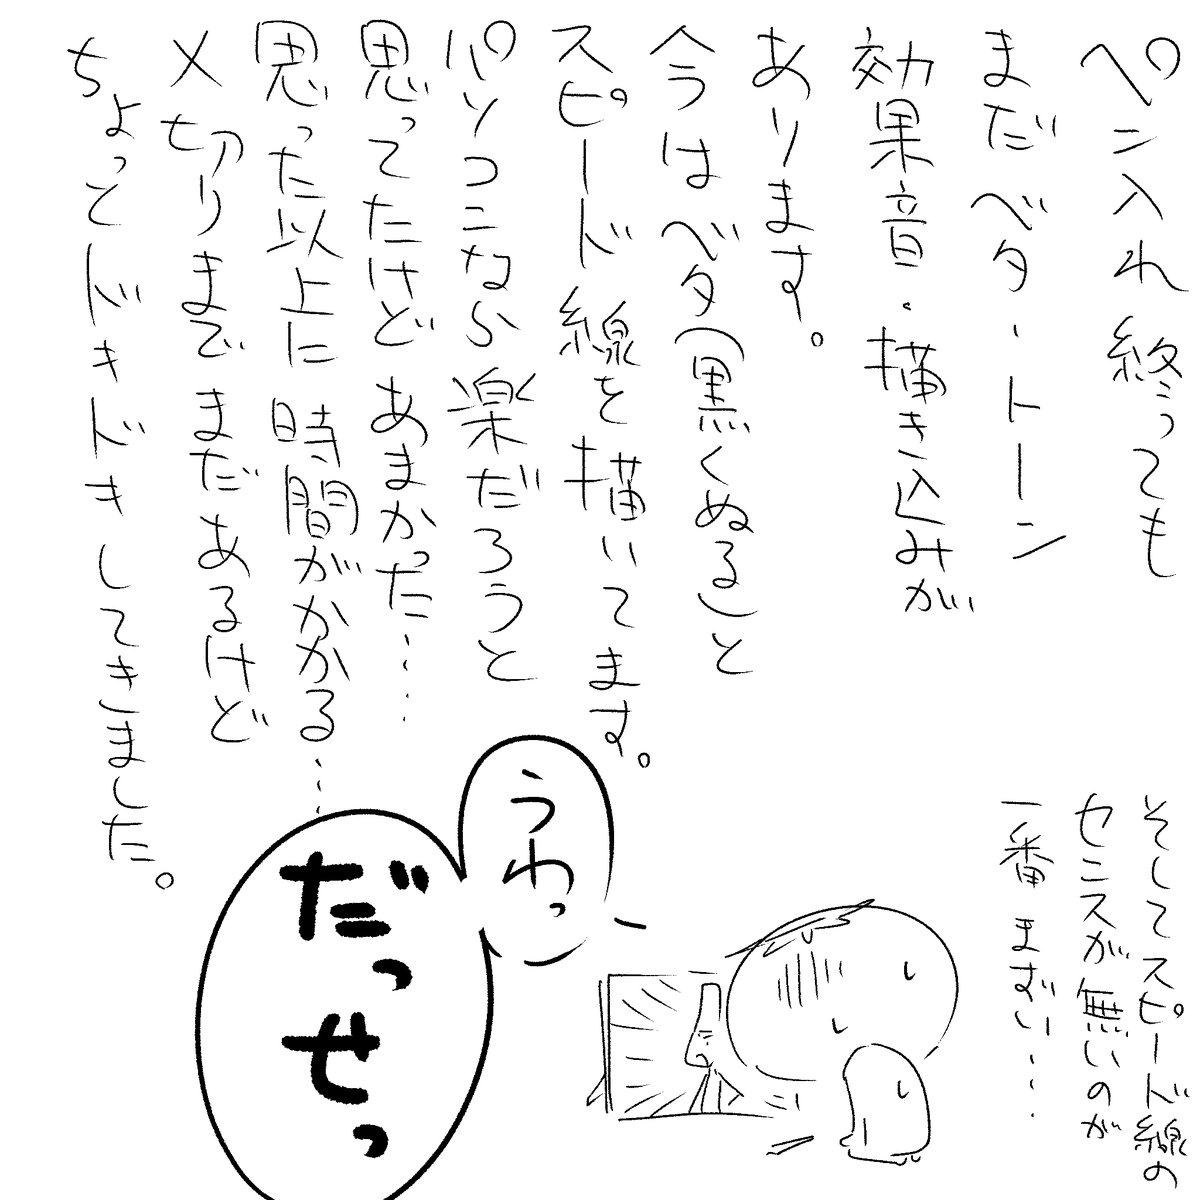 ペン入れ終っても
まだベタ・トーン
効果音・描き込みが
あります。
今はベタ(黒くぬること)と
スピード線を描いてます。
パソコンなら楽だろうと
思ってたけどあまかった……
思った以上に時間がかかる……
〆切りまでまだあるけど
ちょっとドキドキしてきました。
そしてスピード線の
センスが無いのが
一番まずい……
うわっ
だっせっ